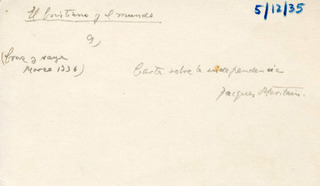 El Cristiano y el mundo
5/12/35
a)
(Cruz y raya
Marzo 1936)
Carta sobre la independencia
Jacques Maritain.